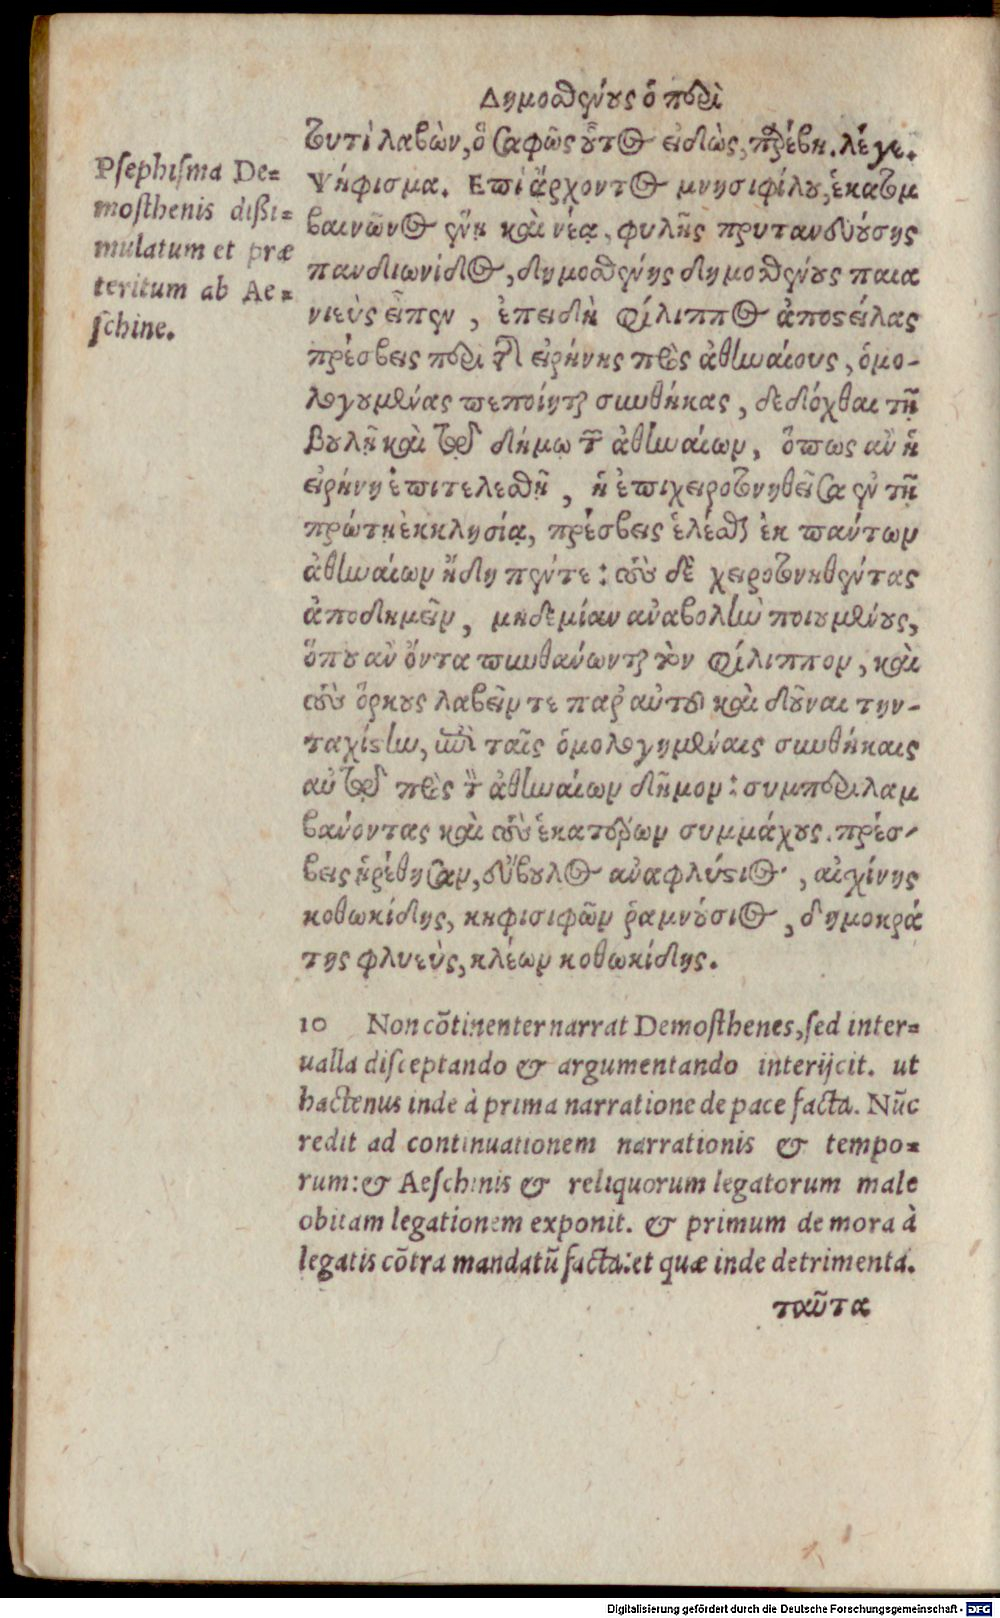 Δημοσθένους ὁ περὶ
τουτὶ λαβὼν, ὃ σαφῶς οὗτος εἰδὼς, παρέβη. λέγε.
Ψήφισμα. Επὶ ἄρχοντος μνησιφίλου, ἑκατομ
βαιῶνος ἕνῃ καὶ νέᾳ, φυλῆς πρυτανευούσης
πανδιωνίδος, δημοσθένης δημοσθένους παια
νιεὺς εἶπεν, ἐπειδὴ φίλιππος ἀποστείλας
πρέσβεις περὶ τῆς εἰρήνης πρὸς ἀθηναίους, ὁμο-
λογουμένας πεποίηται συνθήκας, δεδόχθαι τῇ
βουλῇ καὶ τῷ δήμῳ τῶν ἀθηναίων, ὅπως ἂν ἡ
εἰρήνη ἐπιτελεσθῇ, ἡ ἐπιχειροτονηθεῖσα ἐν τῇ
πρώτῃ ἐκκλησίᾳ, πρέσβεις ἑλέσθαι ἐκ πάντων
ἀθηναίων ἤδη πέντε: τοὺς δὲ χειροτονηθέντας
ἀποδημεῖν, μηδεμίαν ἀναβολὴν ποιουμένους,
ὅπου ἂν ὄντα πυνθάνωνται τὸν φίλιππον, καὶ
τοὺς ὅρκους λαβεῖν τε παρ' αὐτοῦ καὶ δοῦναι την-
ταχίστην, ἐπὶ ταῖς ὁμολογημέναις συνθήκαις
αὐτῷ πρὸς τὸν ἀθηναίων δῆμον: συμπεριλαμ
βάνοντας καὶ τοὺς ἑκατέρων συμμάχους. πρέσ-
βεις ᾑρέθησαν, εὔβουλος ἀναφλύστιος, αἰσχίνης
κοθωκίδης, κηφισιφῶν ῥαμνούσιος, δημοκρά
της φλυεὺς, κλέων κοθωκίδης.
Psephisma De=
mosthenis dißi=
mulatum et præ
teritum ab Ae=
schine.
10 Non cōtinenter narrat Demosthenes, sed inter=
ualla disceptando & argumentando interijcit. ut
hactenus inde à prima narratione de pace facta. Nūc
redit ad continuationem narrationis & tempo=
rum: & Aeschinis & reliquorum legatorum male
obitam legationem exponit. & primum de mora à
legatis cōtra mandatū facta: et quæ inde detrimenta.
ταῦτα
Digitalisierung gefördert durch die Deutsche Forschungsgemeinschaft - DFG